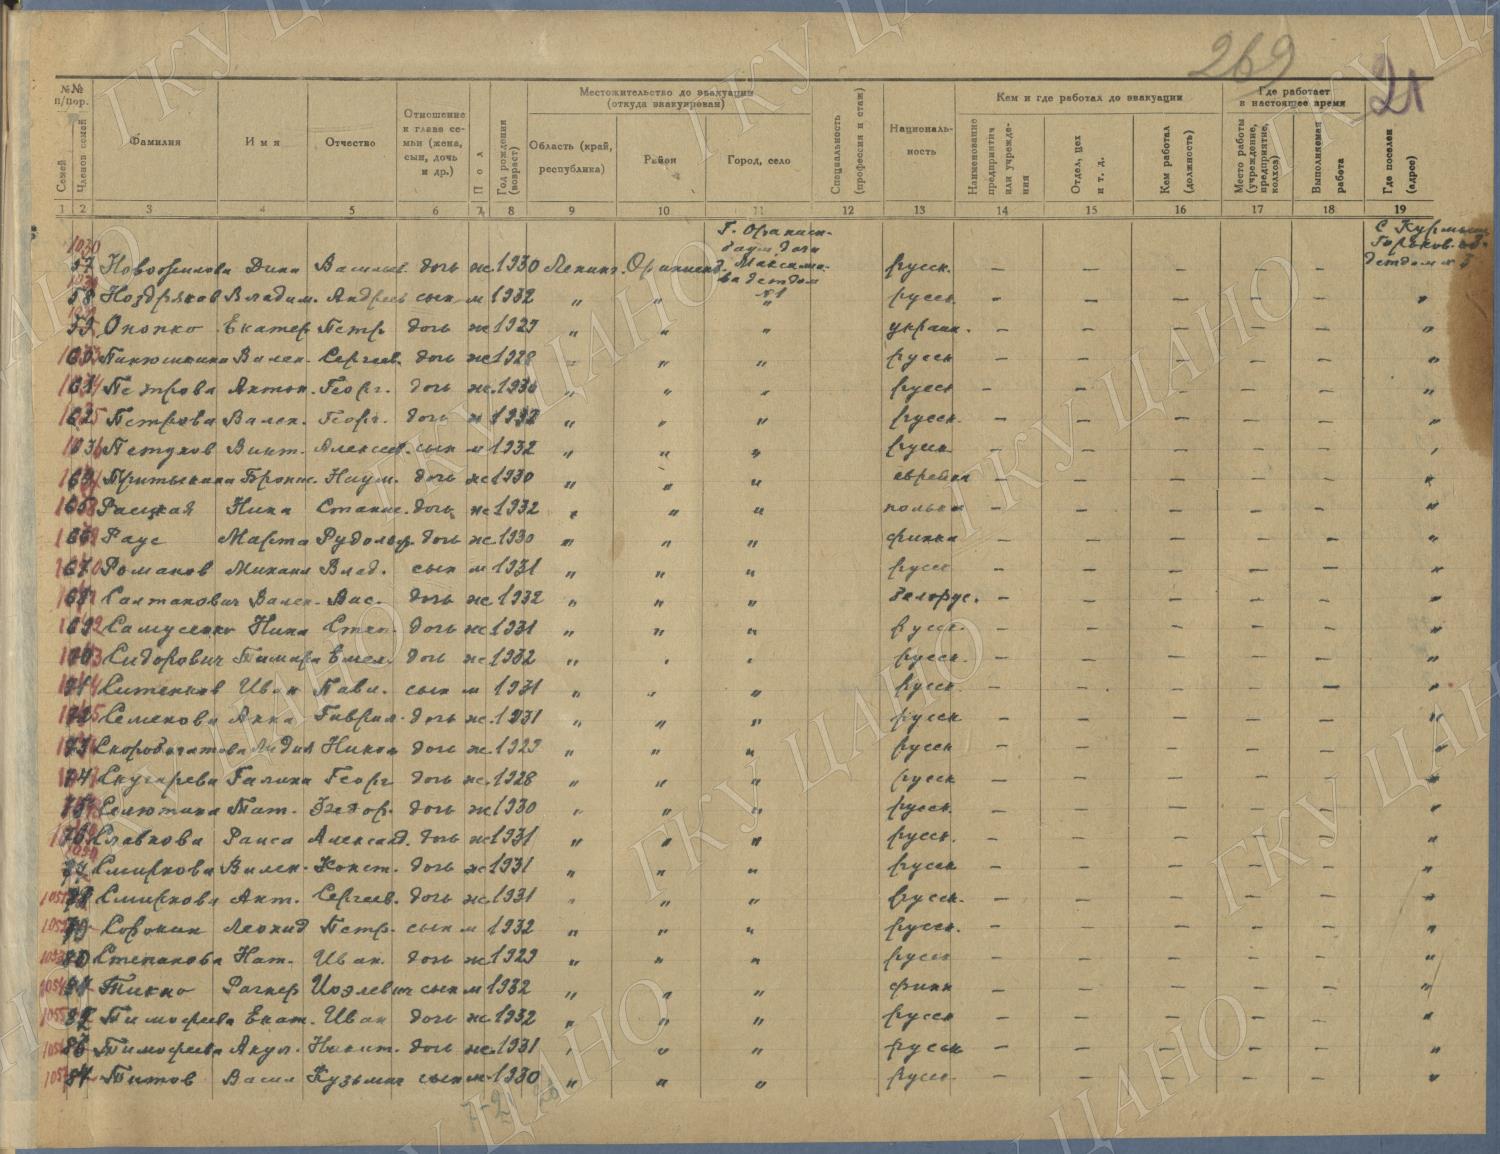 269
21
№№ п/пор.
Семей
Членов семей
Фамилия
Имя
Отчество
Отношение к главе семьи (жена, сын, дочь и др.)
Пол
Год рождения (возраст)
Местожительство до эвакуации (откуда эвакуирован)
Область (край, республика)
Район
Город, село
Специальность (профессия и стаж)
Националь-
ность
Кем и где работал до эвакуации
Наименование предприятия или учреждения
Отдел, цех и т. д.
Кем работал (должность)
Где работает в настоящее время
Место работы (учреждение, предприятие, колхоз)
Выполняемая работа
Где поселен (адрес)
1 2 3 4 5 6 7 8 9 10 11 12 13 14 15 16 17 18 19
1030
57 Новофилова Дина Васильев. дочь ж. 1930 Ленинг. Ораниенб. русск. — — — — —
58 Ноздряков Владим. Андреев сын м 1932 " " " русск. — — — — — "
59 Онопко Екатер. Петр. дочь ж 1929 " " " украин. — — — — — "
60 Валент. Сергеев. дочь ж 1928 " " " русск — — — — — "
61 Петрова Антон. Георг. дочь ж. 1930 " " " русск — — — — — "
62 Петрова Вален. Георг. дочь ж 1932 " " " русск. — — — — — "
Петухов Викт. Алексеев. сын м 1932 " " " русск — — — — — "
64 Наум. дочь ж 1930 " " " еврейка — — — — — "
65 Нина Станис. дочь ж 1932 " " " полька — — — — — "
66 Раус Марта Рудольф. дочь ж 1930 " " " финка — — — — — "
67 Романов Михаил Влад. сын м 1931 " " " русс — — — — — "
68 Салтанович Вален. Вас. дочь ж 1932 " " " белорус. — — — — — "
69 Самусенко Нина Степ. дочь ж 1931 " " " русск. — — — — — "
70 Сидорович Тамара Емел. дочь ж 1932 " " " русск. — — — — — "
71 Ситенков Иван Павл. сын м 1931 " " " русск. — — — — — "
72 Семенова Анна Гаврил. дочь ж. 1931 " " " русск — — — — — "
73 Скоробогатова Лидия Никол дочь ж. 1929 " " " русск — — — — — "
74 Галина Георг дочь ж. 1928 " " " русск — — — — — "
75 Селютина Тат. Федор. дочь ж. 1930 " " " русск. — — — — — "
76 Славнова Раиса Александ. дочь ж 1931 " " " русск. — — — — — "
77 Смирнова Вален. Конст. дочь ж 1931 " " " русск — — — — — "
78 Смирнова Ант. Сергеев. дочь ж. 1931 " " " русск. — — — — — "
79 Сорокин Леонид Петр. сын м 1932 " " " русск. — — — — — "
80 Степанова Нат. Иван. дочь ж 1929 " " " русск — — — — — "
81 Тикко Рагнер Иоэлевич сын м 1932 " " " финн — — — — — "
82 Тимофеева Екат. Иван дочь ж 1932 " " " русск — — — — — "
Тимофеева Акул. Никит. дочь ж. 1931 " " " русск — — — — — "
84 Титов Васил Кузьмич сын м 1930 " " " русс — — — — — "
ГКУ ЦАНО